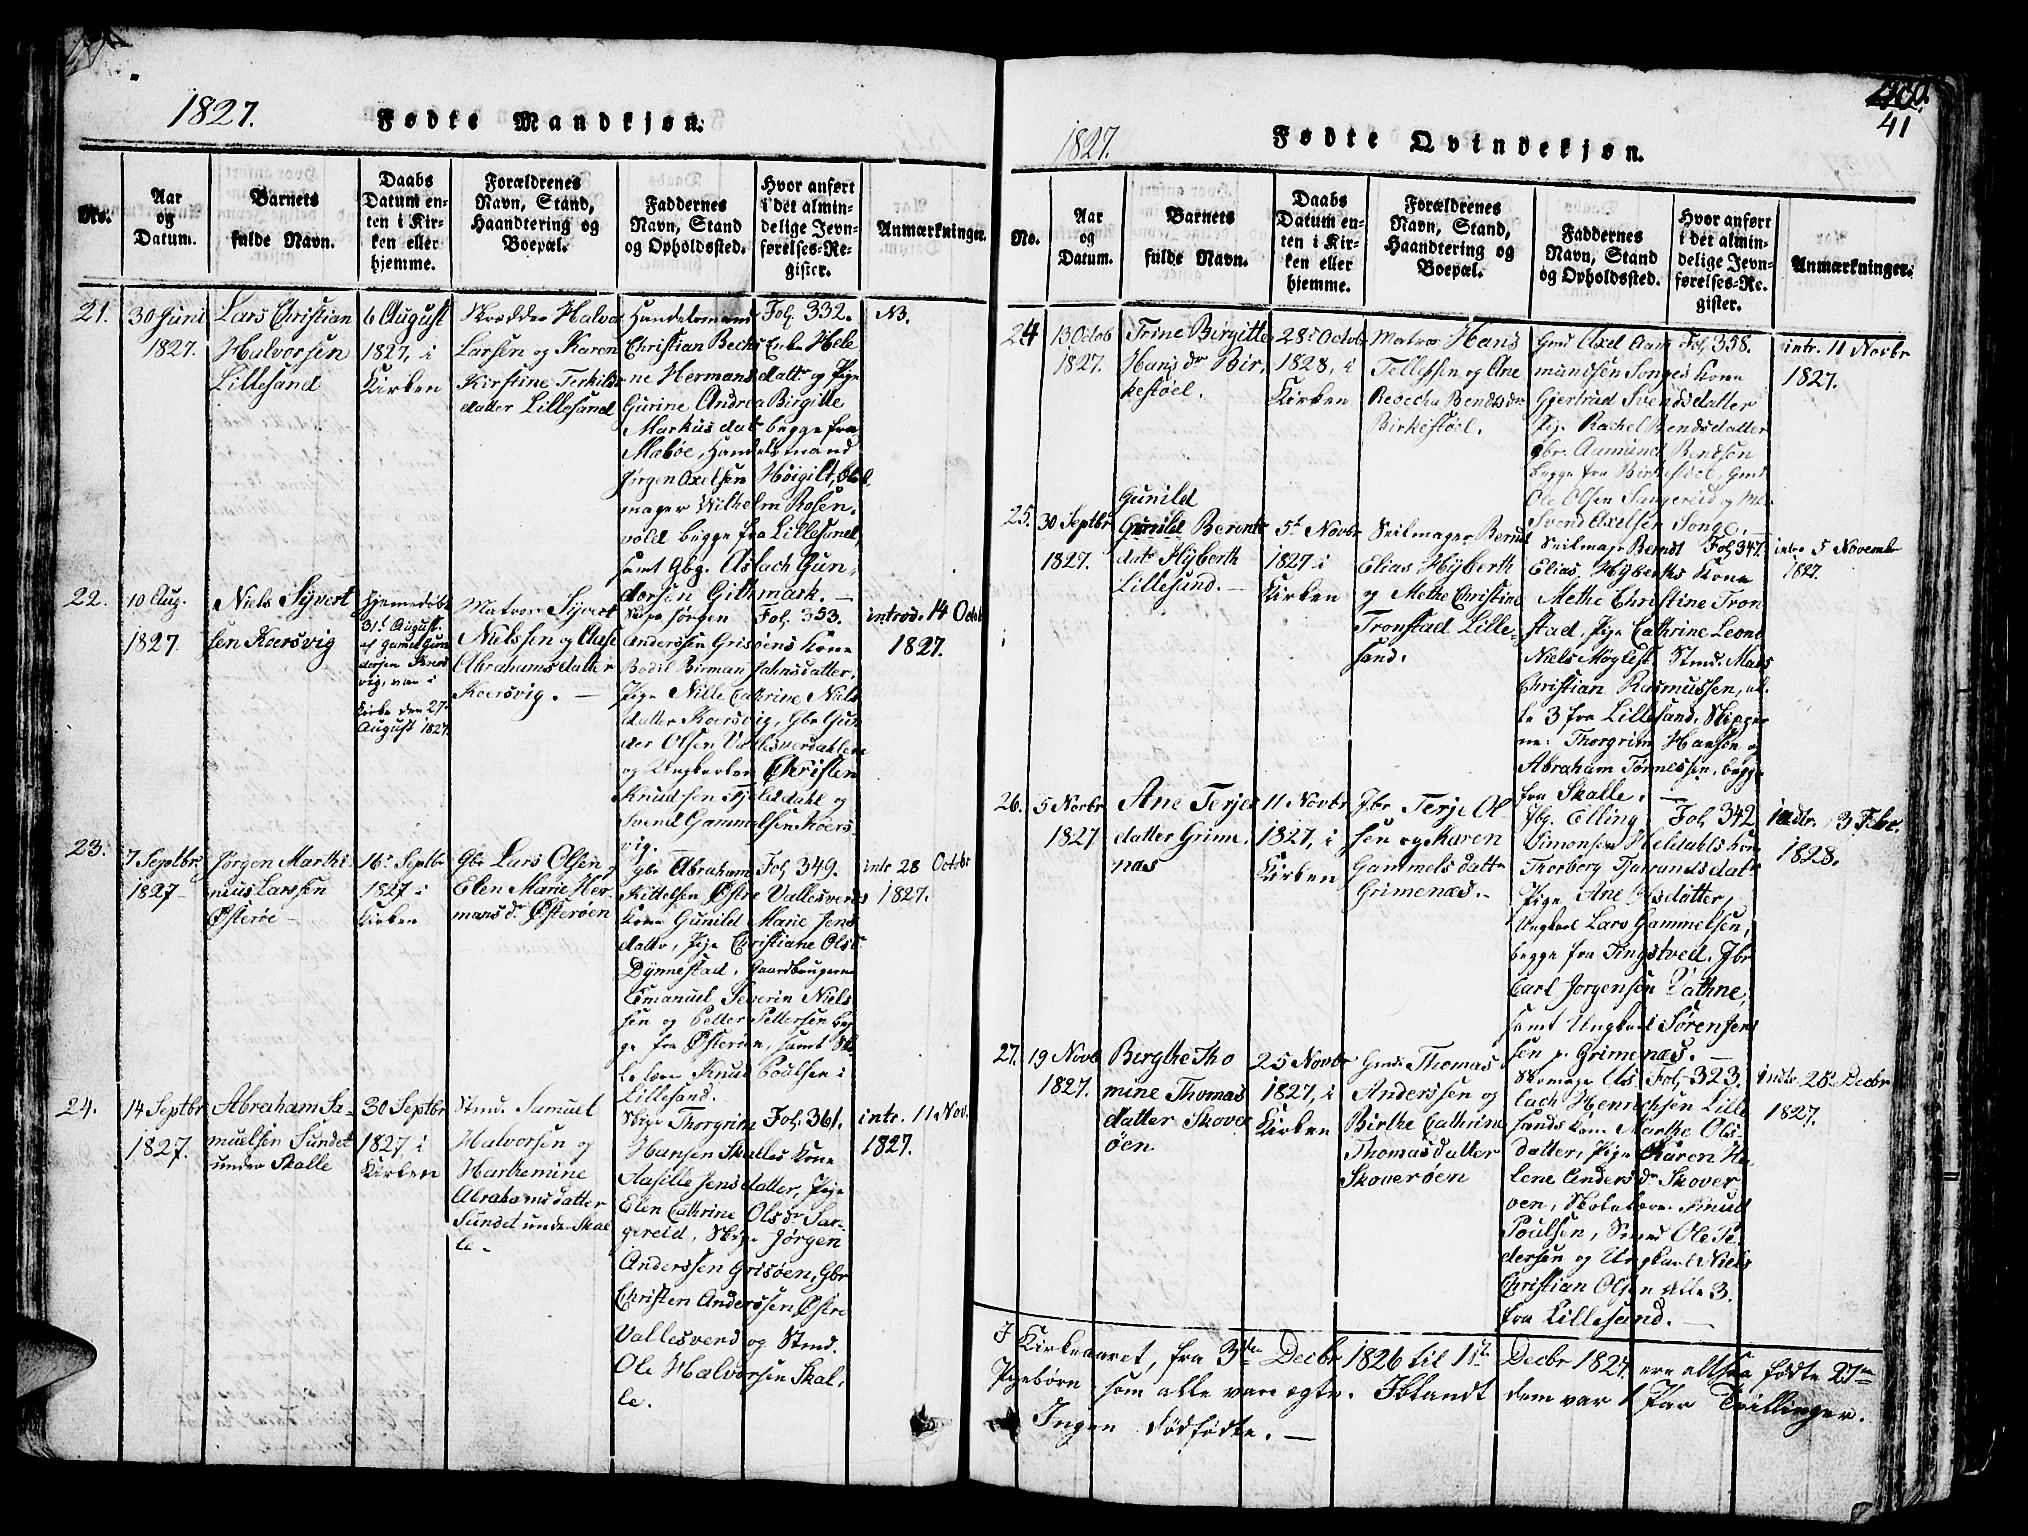 1827.
Fødte Mandkjøn.
No.
Aar
og
Datum.
Barnets
fulde Navn.
Daabs
Datum en-
ten i Kir-
ken eller
hjemme.
Forældrenes
Navn, Stand,
Haandtering og
Boepæl.
Faddernes
Navn, Stand
og Opholdssted.
Hvor anført
i det almin-
delige Jevn-
førelses-Re-
gister.
Anmærkninger.
21.
30 Juni
1827.
Lars Christian
Halvorsen
Lillesand
6 August
1827, i
Kirken
Skrædder Halvor
Larsen og Karen
Kirstine Terkilds
datter Lillesand
Handelsmand
Christian Bechs Enke Hele
ne Hermansdattr og Pige
Gurine Andrea Birgitte
Markusdat begge fra
Mæbøe, Handelsmand
Jørgen Axelsen Høigilt,
mager Wilhelm Rosen,
vold begge fra Lillesand,
samt Gbg. Aslach Gun,
dersen Githmark. —
Fol. 332.
NB.
22.
10 Aug.
1827.
Niels Syvert
sen Koersvig
Hjemmedøbt
31t August
af Gamel Gun
dersen Koers
vig, var i
Kirke den 27
August 1827.
Matros Syvert
Nielssen og Aase
Abrahamsdatter
Koersvig. —
Skips Jørgen
Anderssen Grisøens Kone
Bodil Birman Jahnsdatter,
Pige Nille Cathrine Niels
datter Koersvig, Gbr Gun
der Olsen Vallesverdahlen
og Ungkarlen Christen
Knudsen Tjeldahl og
Svend Gammelsen Koers-
vig.
Fol. 353.
introd. 14 Octob
1827.
23.
7 Septbr
1827 –
Jørgen Marthi
nius Larssen
Østerøe –
16t Septbr
1827 i
Kirken
Gbr Lars Olsen
Elen Marie Her
mansdr Østerøen
Gbr Abraham
Kittelsen Østre Vallesverds
Kone Gunild Marie Jens
dattr, Pige Christiane Olsdr
Dynnestad, Gaardbrugerne
Emanuel Severin Niels
sen og Petter Pettersen beg
ge fra Østerøen, samt Sko
lelærer Knud Poulsen i
Lillesand.
Fol. 349.
intr. 28 Octobr
1827.
24.
14 Septbr
1827.
Abraham Sa-
muelsen Sundet
under Skalle
30 Septbr
1827 i
Kirken
Stmd. Samuel
Halvorsen og
Harkemine
Abrahamsdatter
Sundet under Skal
le.
Skips Thorgrim
Hansen Skalles Kone
Aasille Jensdatter, Pige
Elen Cathrine Olsdr San-
gereid, Skips Jørgen
Anderssen Grisøen, Gbr
Christen Anderssen Østre
Vallesverd og Stmd.
Ole Halvorsen Skal,
le.
Fol. 361.
intr. 11 Nov.
1827.
41
1827.
Fødte Qvindekjøn.
No.
Aar
og
Datum.
Barnets
fulde Navn.
Daabs
Datum en-
ten i Kir-
ken eller
hjemme.
Forældrenes
Navn, Stand,
Haandtering og
Boepæl.
Faddernes
Navn, Stand
og Opholdssted.
Hvor anført
i det almin-
delige Jevn-
førelses-Re-
gister.
Anmærkninger.
24
13 Octob
1827.
Trine Birgitte
Hansdr Bir,
kestøel.
28t Octobr
1828, i
Kirken
Matros Hans
Tellefsen og Ane
Rebecha Bendsdr
Birkestøel.
Gmd Axel Aam
mundsen Songes Kone
Gjertrud Svendsdatter
Pige Rachel Bendsdatter
gbr. Aamund Bendsen
begge fra Birkestøel, Gmd
Ole Olsen Sangereid og
Svend Axelsen Songe.
Fol. 358.
intr. 11 Novbr
1827.
25.
30 Septbr
1827.
Gunild
Gunild Berents
datr Hyberth
Lillesand. –
5t Novbr
1827 i
Kirken
Seilmager Bernt
Elias Hyberth
og Methe Christine
Tronstad Lille-
sand.
Seilmagr Berndt
Elias Hyberths Kone
Methe Christine Tron
stad, Pige Cathrine Leons
Niels Møglest, Stmd. Mads
Christian Rasmussen, al-
le 3 fra Lillesand, Skipper
ne. Thorgrim Hansen og
Abraham Tønnessen, begge
fra Skalle. —
Fol. 347.
intr. 5 Novembr
1827.
26.
5 Novbr
1827
Ane Terjes
datter Grime
næs
11 Novbr
1827, i
Kirken
Jbr Terje Ol
sen og Karen
Gammelsdattr
Grimenæs. –
Jbg. Elling
Simonsen Heldahls Kone
Thorborg Tjærandsdatr
Pige Ane Olsdatter,
Ungkarl Lars Gammelsen,
begge fra Tingstved. Jbr
Carl Jorgensen Vathne,
samt Ungkarl Søren Jens
sen p. Grimenæs. —
Fol. 342
intr. 3 Febr.
1828.
27.
19 Novb
1827.
Birgthe Tho
mine Thomas
datter Skover
øen
25 Novbr
1827, i
Kirken
Gmd. Thomas
Anderssen og
Birthe Cathrine
Thomasdatter
Skoverøen
Skomagr As
lach Henrichsen Lille
sands Kone Marthe Ols-
datter, Pige Karen He-
lene Andersdr Skover
øen, Skolelærer Knud
Poulsen, Smed Ole Pe
dersen og Ungkarl Niels
Christian Olsen alle 3.
fra Lillesand. —
Fol. 323.
intr. 26 Decbr
1827.
I Kirkeaaret, fra 3die Decbr 1826 til 1ste Decbr 1827 ere altsaa fødte 27
Pigebørn som alle vare ægte. Iblandt dem var 1 Par Tvillinger.
Ingen dødfødte. —